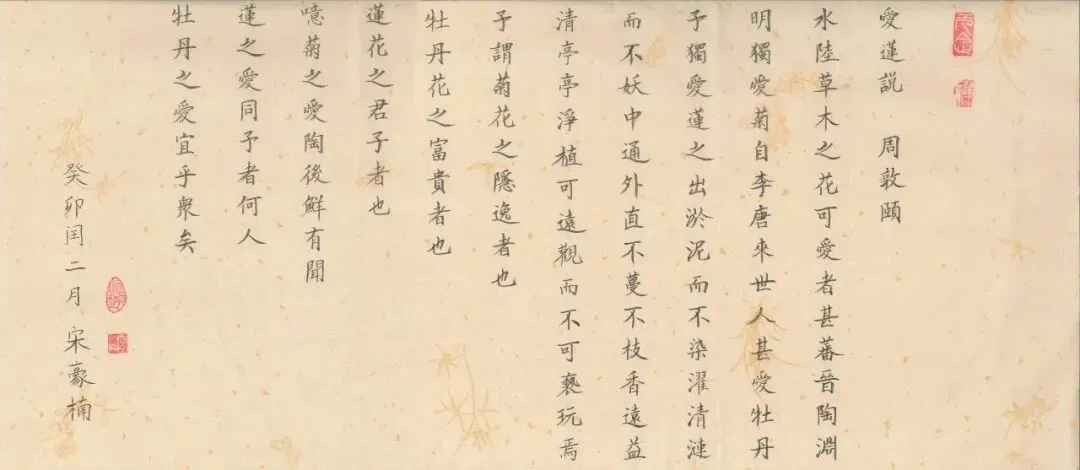 愛蓮説 周敦頤
水陸草木之花可愛者甚蕃晉陶淵
明獨愛菊自李唐來世人甚愛牡丹
予獨愛蓮之出淤泥而不染濯清漣
而不妖中通外直不蔓不枝香遠益
清亭亭淨植可遠觀而不可褻玩焉
予謂菊花之隱逸者也
牡丹花之富貴者也
蓮花之君子者也
噫菊之愛陶後鮮有聞
蓮之愛同予者何人
牡丹之愛宜乎衆矣
癸卯閏二月 宋豪楠